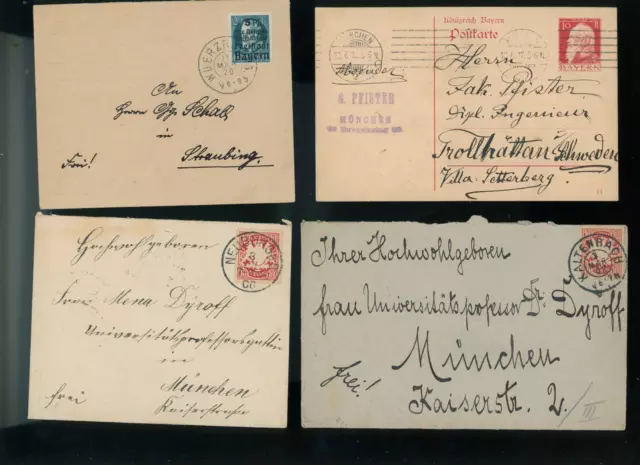 WUERZ
5 Pf.
Freistaat
Bayern
An
Herrn Gg. Schab
in
Frei!
Straubing.
Königreich Bayern
Postkarte
MÜNCHEN
10
BAYERN
Absender
G. PFISTER
MÜNCHEN
Herrn
Jak. Pfister
Dipl. Ingenieur
Trollhättan Schweden
Villa Setterberg.
11
NEU
Hochwohlgeboren
Frau Mena Dyroff
Universitätsprofessorsgattin
in
München
frei
Kaiserstrasse
KALTENBACH
Ihrer Hochwohlgeboren
frau Universitätsprofessor Dr. Dyroff
München
frei!
Kaiserstr. 2/III